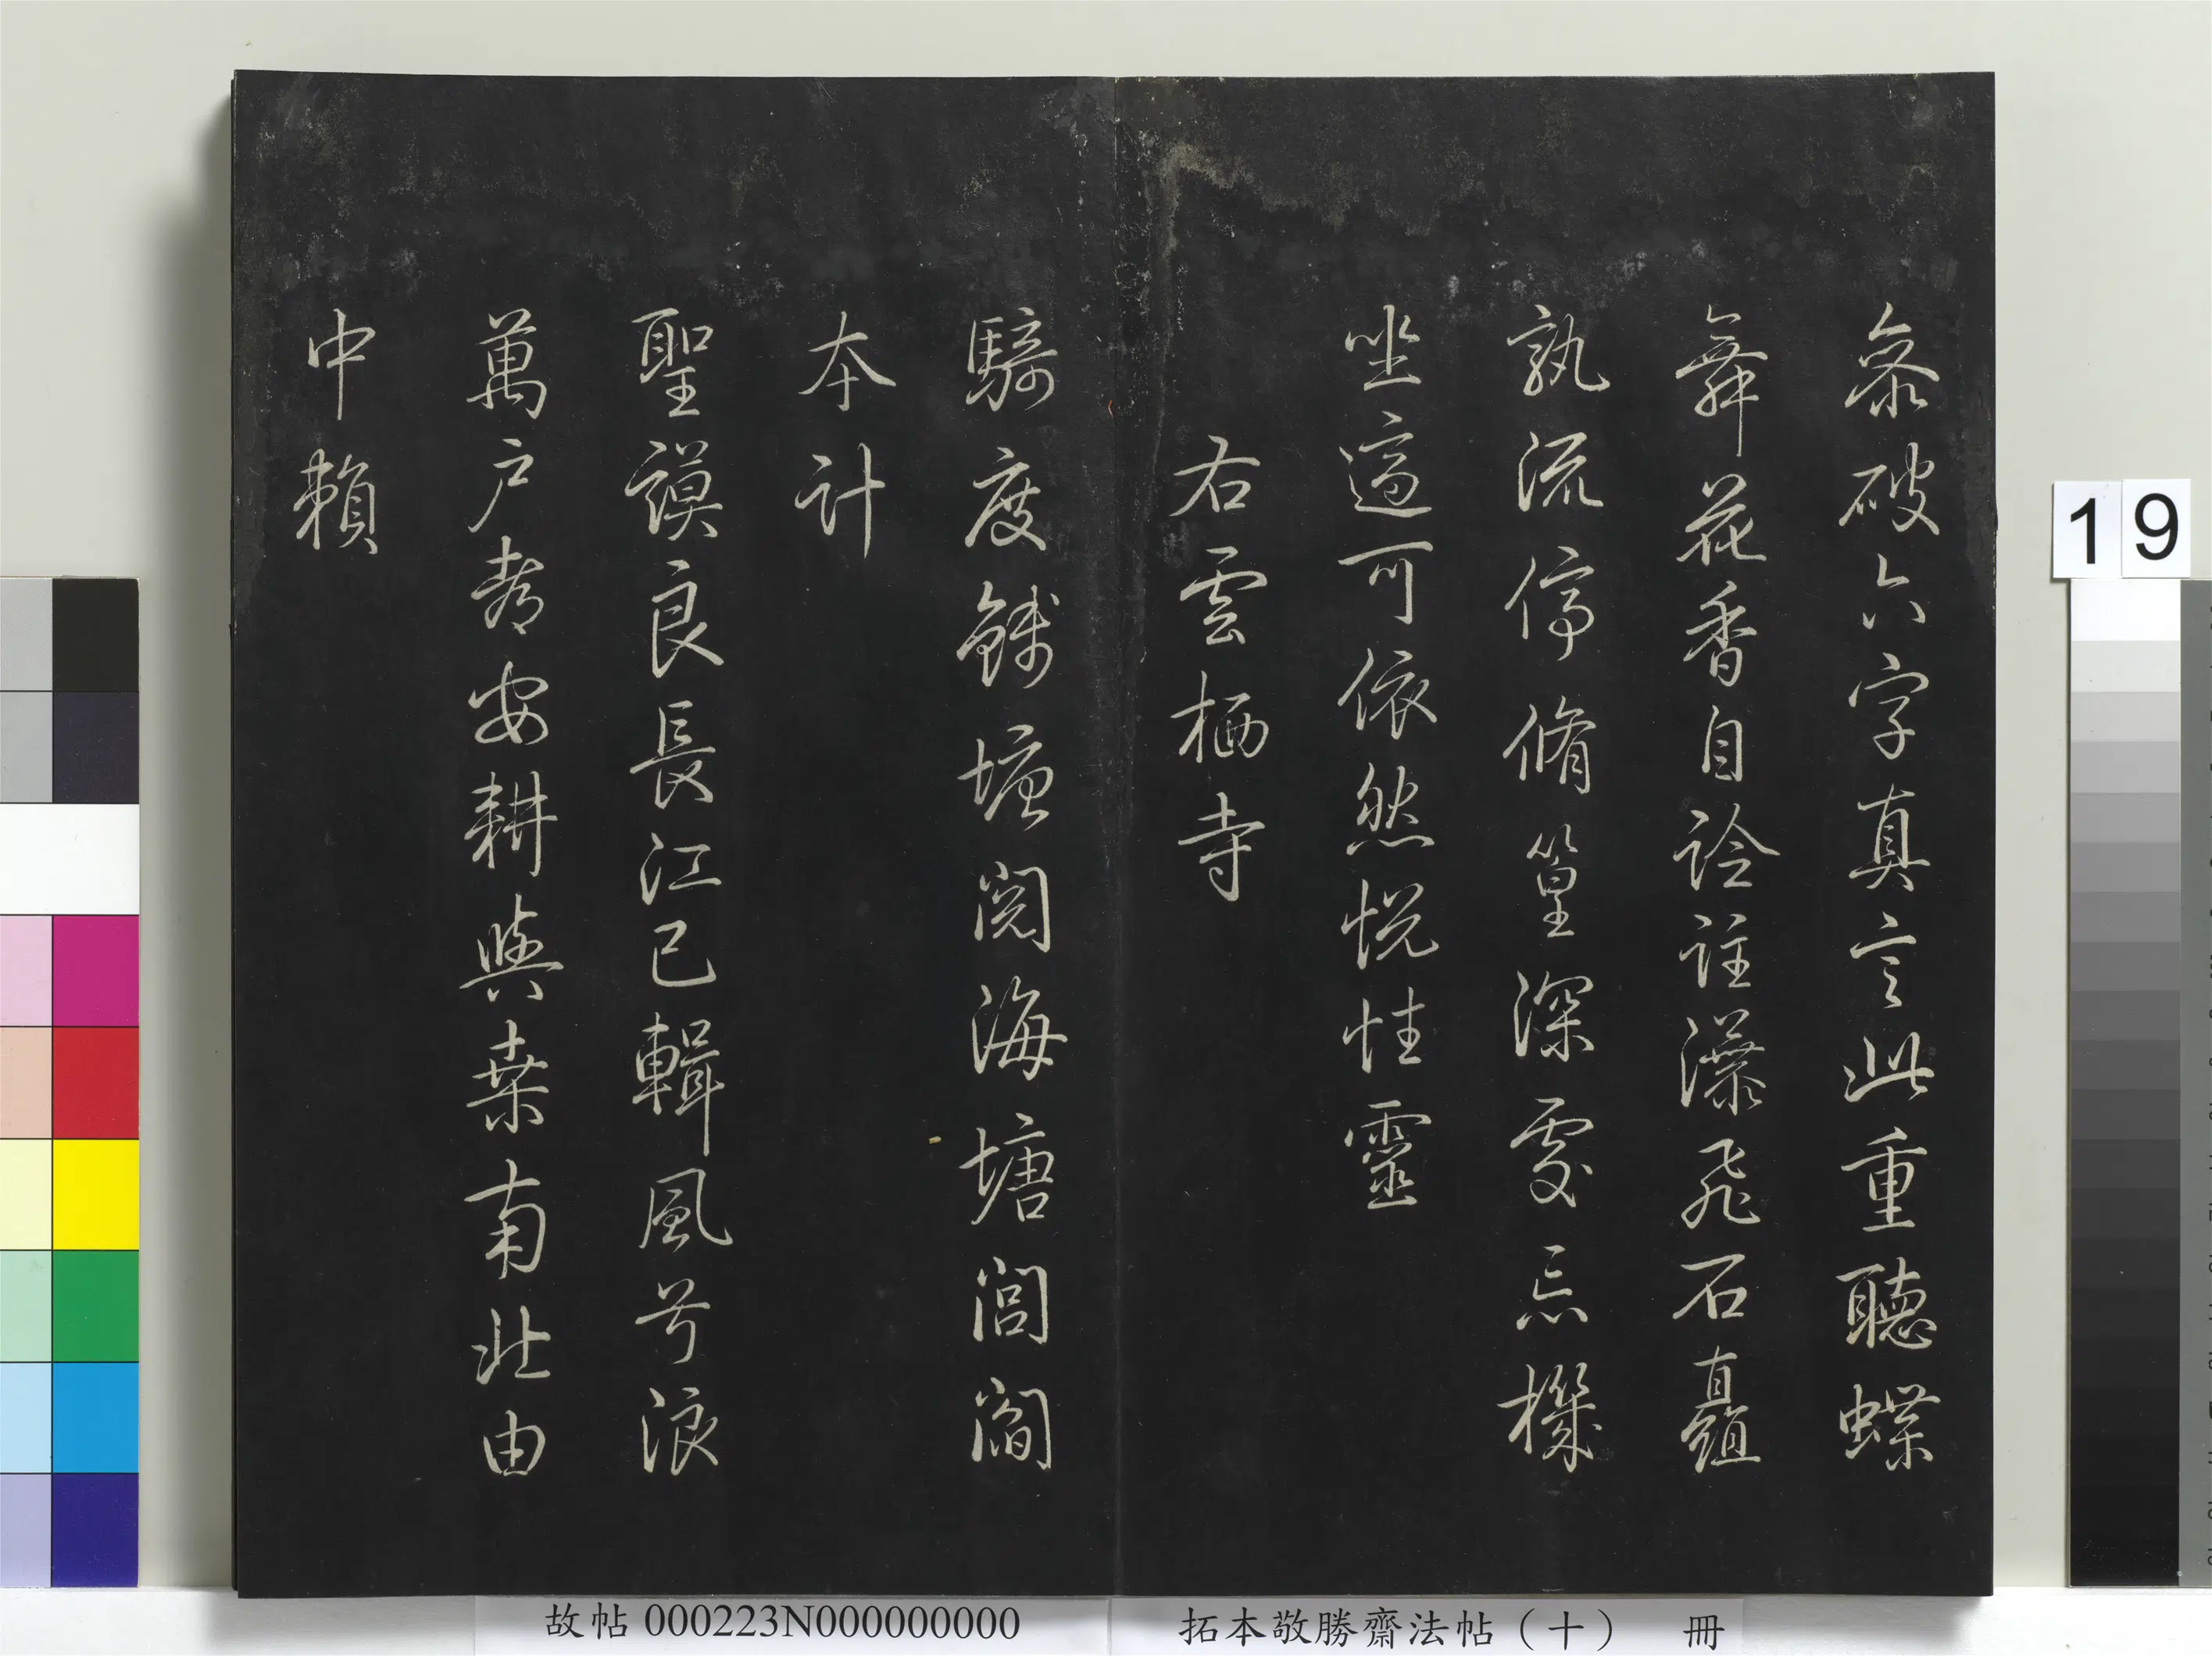 叅破六字真言此重聽蝶
舞花香自詮註瀑飛石矗
孰流停脩篁深處忘機
坐適可依然悅性靈
右雲栖寺
騎度錢塘閱海塘閭閻
本計
聖謨良長江已輯風兮浪
萬戶都安耕與桑南北由
中賴
19
故帖 000223N000000000
拓本敬勝齋法帖（十） 冊